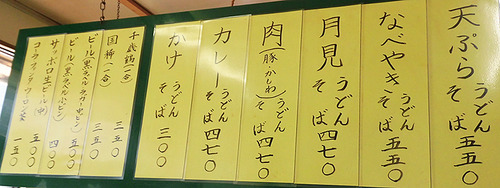 天ぷら うどん そば 五五〇
なべやき うどん 五五〇
月見 うどん そば 四七〇
肉(豚・かしわ) うどん そば 四七〇
カレー うどん そば 四七〇
かけ うどん そば 三〇〇
千成鶴(一合)
国稀(一合) 三五〇
ビール(黒ラベル 五五〇
ビール(黒ラベル小ビン) 四〇〇
サッポロ生ビール(中) 五〇〇
コーラ 一五〇